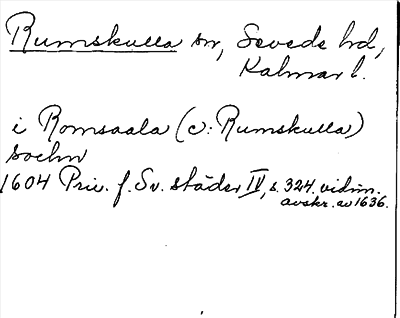 Rumskulla sn, Sevede hd,
Kalmar l.
i Romsaala (c: Rumskulla)
sochn
1604 Priv. f. Sv. städer IV, s. 324. vidim.
avskr. av 1636.